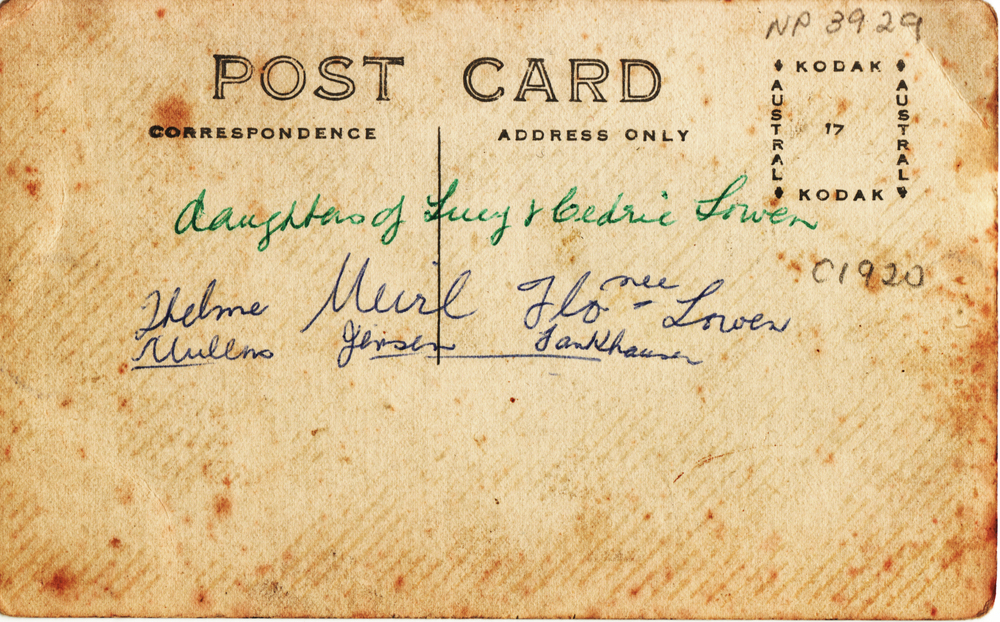 NP 3929
POST CARD
KODAK
AUSTRAL
17
AUSTRAL
KODAK
CORRESPONDENCE
ADDRESS ONLY
daughters of Lucy & Cedric Lowen
C1920
Thelma Meirl Flo nee Lowen
Mullens Jensen Fankhauser